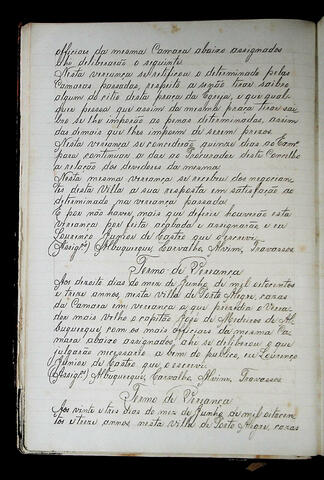 officiaes da mesma Camara abaixo assignados
ahe deliberarão o siguinte
Nesta veriança se retificou o determinado pelas
Camaras passadas, respeito a senão tirar saibro
algum do citio desta praça da Igreja, e que qual-
quer pessoa que assim da mesma praça tirar sai-
bro se lhe imporão as penas determinadas, assim
das demais que lhes impoem de serem prezos.
Nesta veriança se concedirão quinze dias ao Esm.
para continuar a dar ao Procurador deste Concelho
a relação dos devedores da mesma
Nesta mesma veriança se recebeu dos negocian-
tes desta Villa a sua resposta em satisfação ao
determinado na veriança passada
E por não haver mais que deferir houverão esta
veriança por feita acabada e assignarão e eu
Lourenço Junior de Castro que o escrevi.
(Assigr.) Albuquerque, Carvalho, Alvim, Travassos
Termo de Veriança
Aos dezoito dias do mez de Junho de mil oitocentos
e treze annos, nesta villa de Porto Alegre, cazas
da Camara em veriança a que prezidio o Verea-
dor mais Velho o capitão Joze de Medeiros de Al-
buquerque, com os mais officiaes da mesma Ca-
mara abaixo assignados, ahe se deliberou o que
julgarão necessario a bem do publico, eu Lourenço
Junior de Castro que o escrevi
(Assigr.) Albuquerque, Carvalho, Alvim, Travassos
Termo de Veriança
Aos vinte e tres dias do mez de Junho de mil oitocen-
tos e treze annos, nesta villa de Porto Alegre, cazas